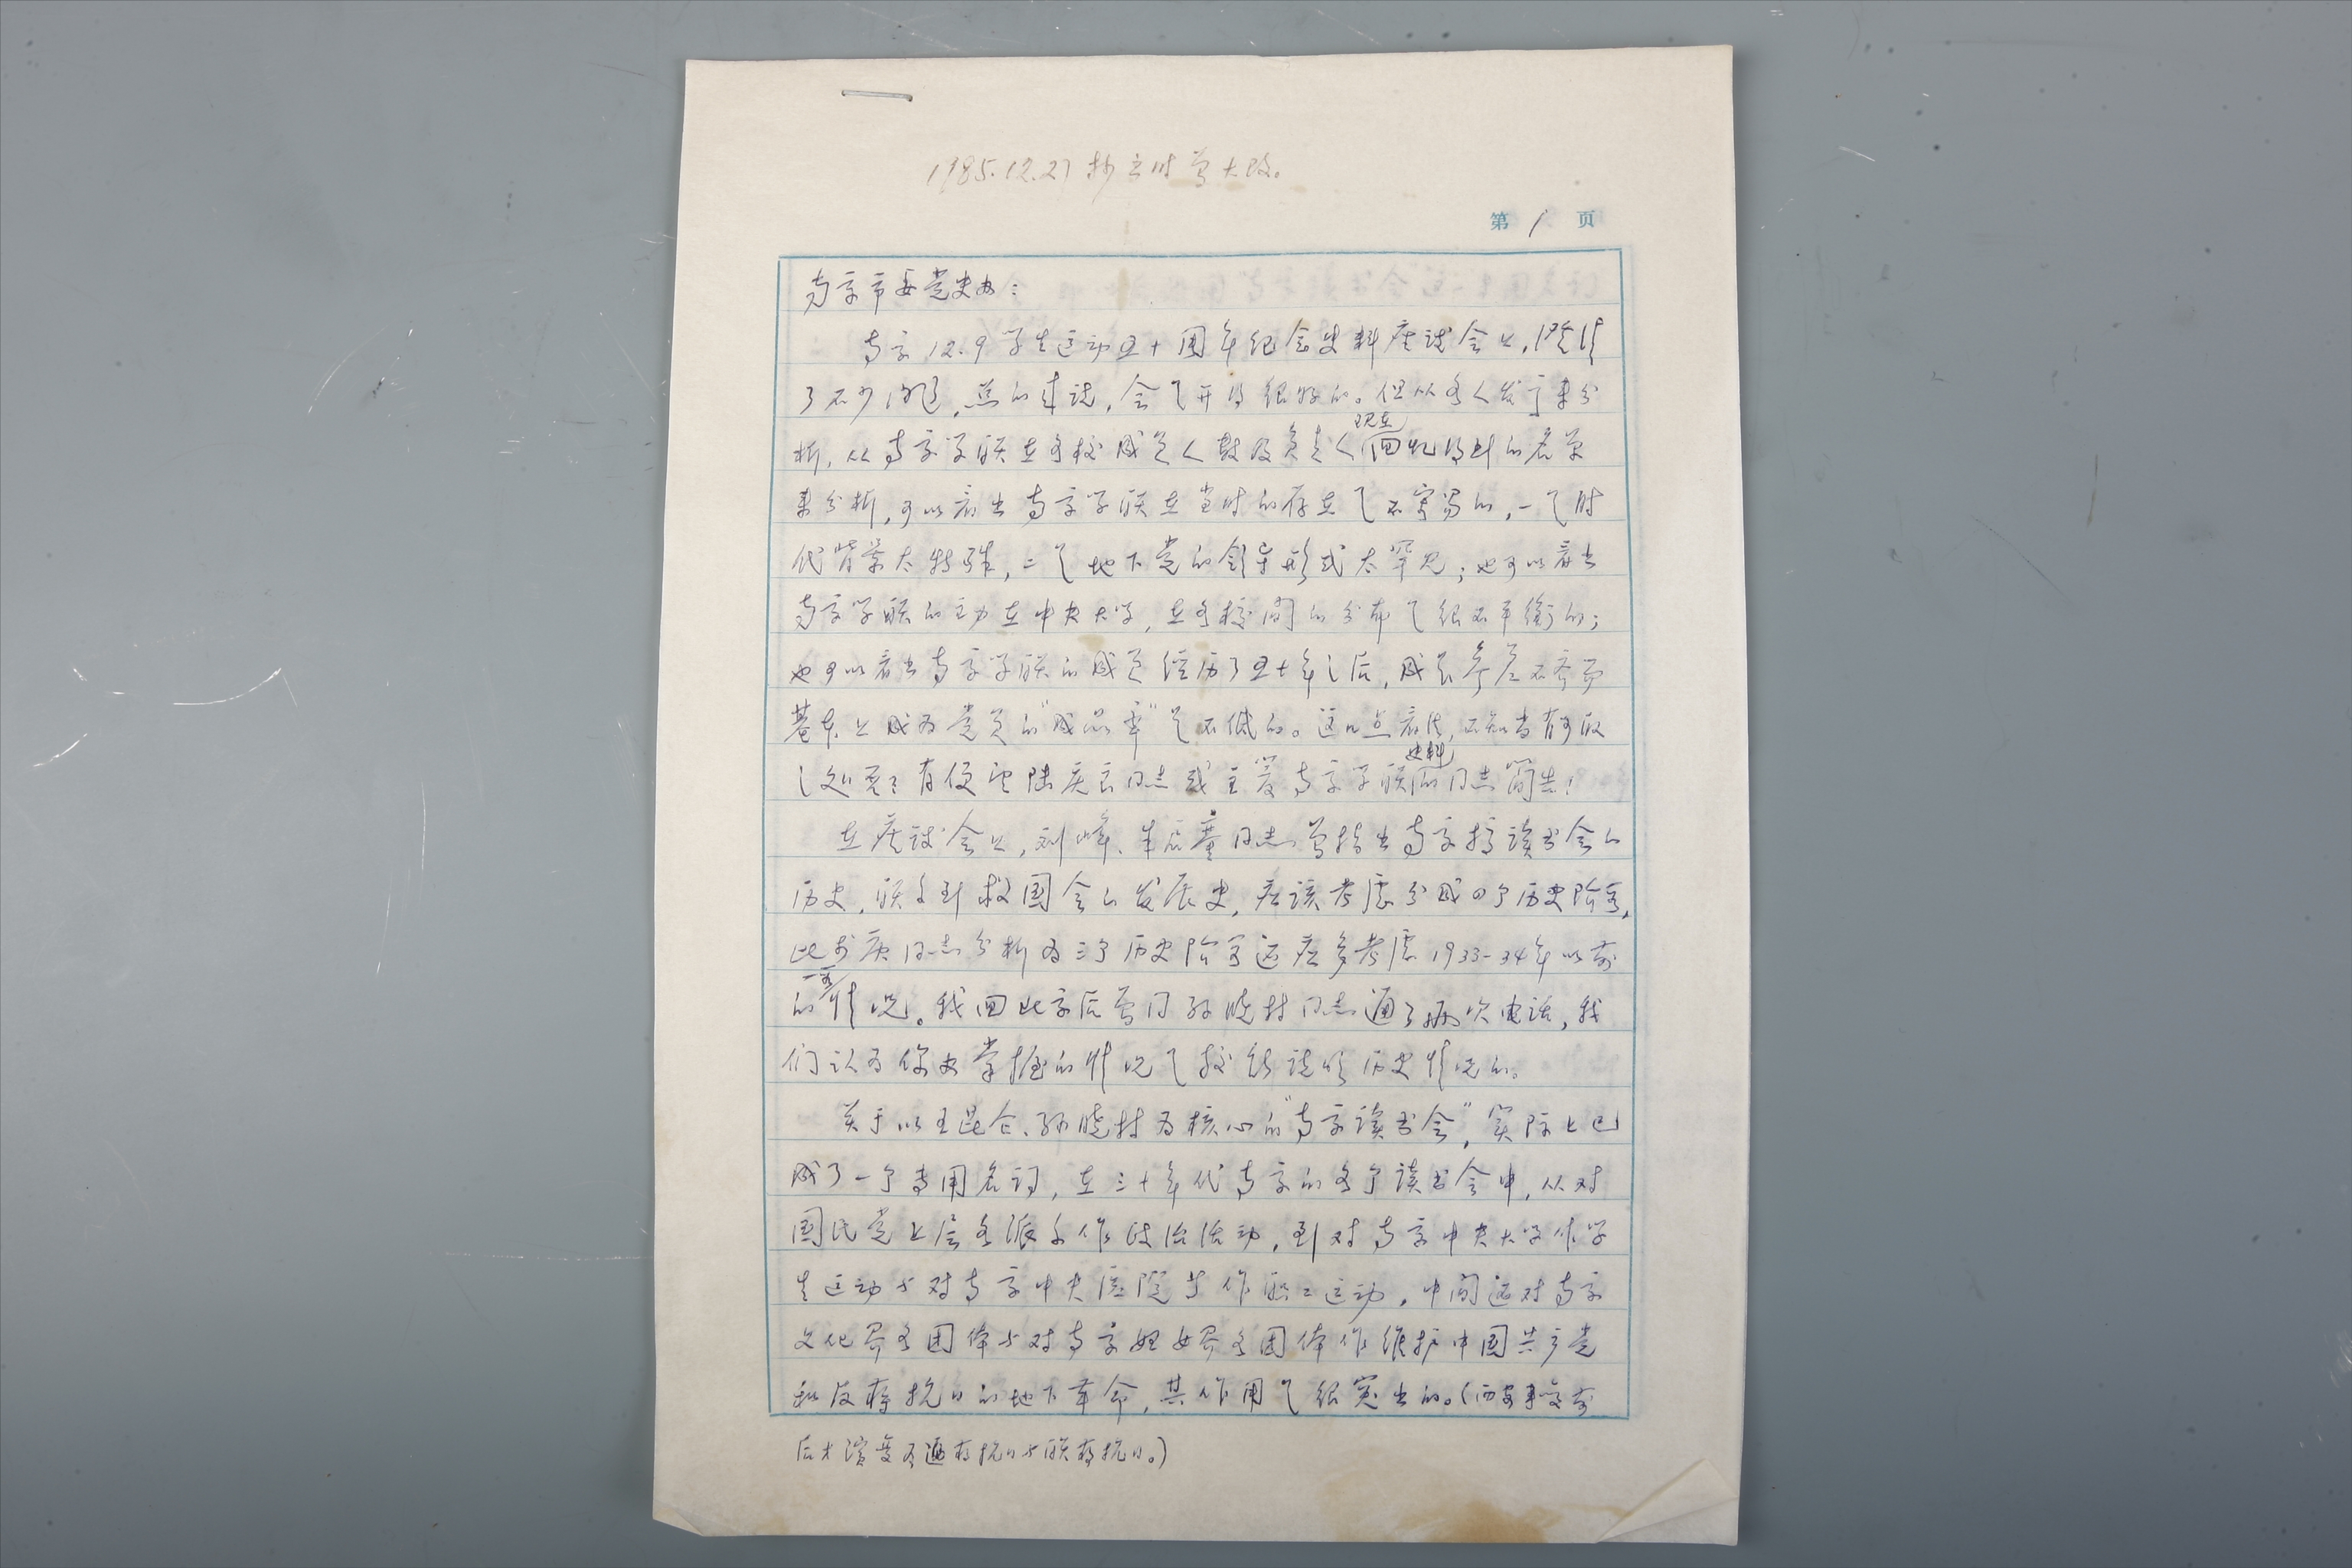 1985.12.27 抄出时曾大改。
第 1 页
南京市委党史办：
南京12.9学生运动五十周年纪念史料座谈会上，澄清
了不少问题，总的来说，会是开得很好的。但从各人发言来分
析，从南京学联在各校成员人数及负责人现在回忆得到的名单
来分析，可以看出南京学联在当时的存在是不容易的，一是时
代背景太特殊，二是地下党的领导形式太罕见；也可以看出
南京学联的主力在中央大学，在各校间的分布是很不平衡的；
也可以看出南京学联的成员经历了五十年之后，成长参差不齐而
基本上成为党员的“成品率”是不低的。这几点看法，不知当有可取
之处否？有便望陆庆良同志或主要南京学联史料的同志简告！
在座谈会上，刘峰、朱启銮同志曾指出南京搞读书会的
历史，联系到救国会的发展史，应该考虑分成四个历史阶段，
比我原同志分析为三个历史阶段还应多考虑1933-34年以前
的一段情况。我回北京后曾同孙晓村同志通了两次电话，我
们认为你史掌握的情况是较能说明历史情况的。
关于以王昆仑、孙晓村为核心的“南京读书会”，实际上已
成了一个专用名词，在三十年代南京的各个读书会中，从对
国民党上层各派系作政治活动，到对南京中央大学作学
生运动与对南京中央医院等作职工运动，中间还对南京
文化界各团体与对南京妇女界各团体作维护中国共产党
和反蒋抗日的地下革命，其作用是很突出的。（西安事变前
后才演变为逼蒋抗日与联蒋抗日。）